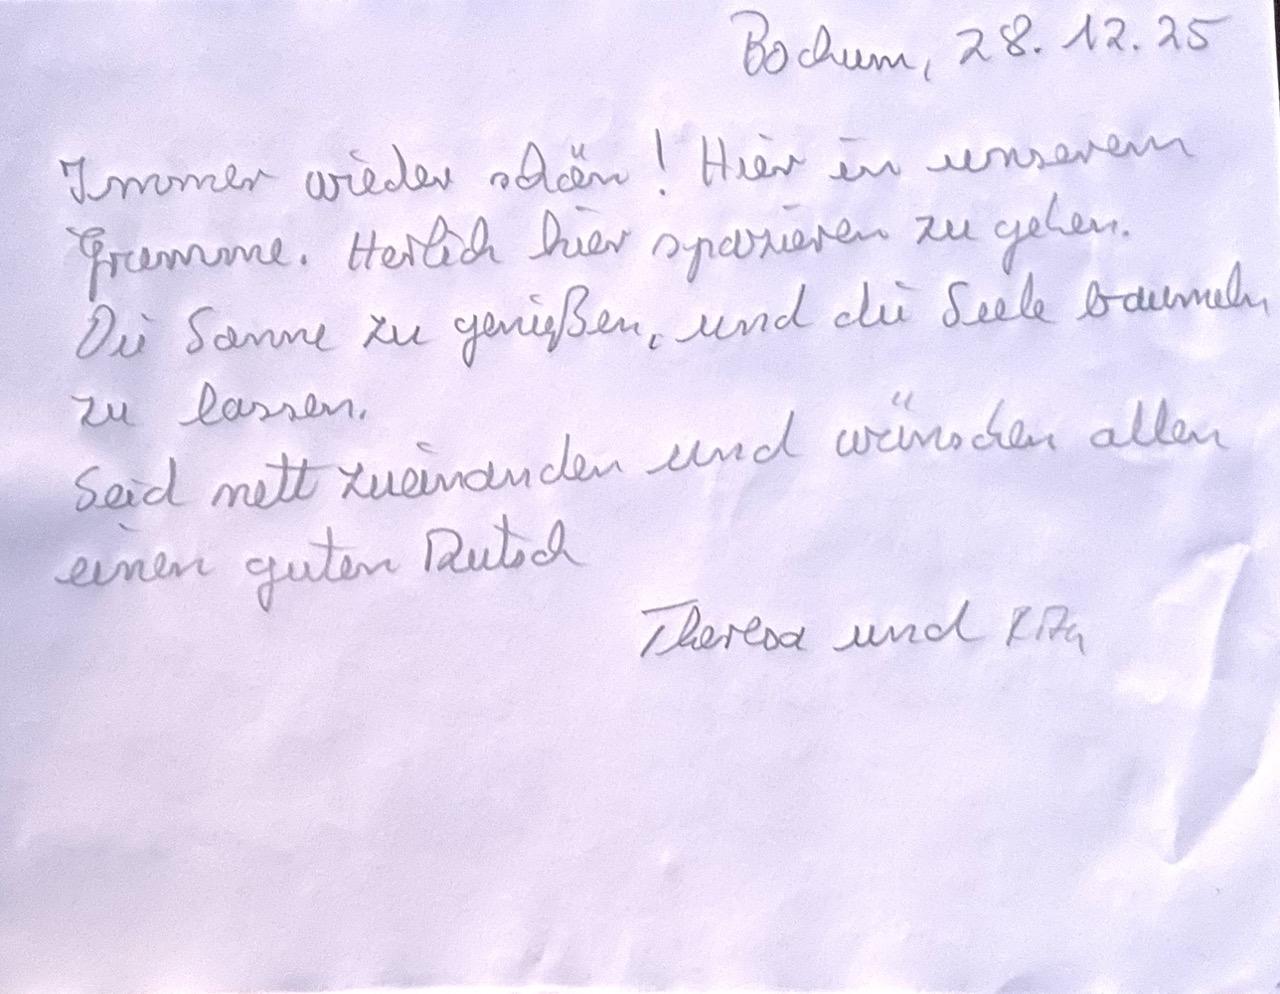 Bochum, 28.12.25
Immer wieder schön! Hier in unserem
Grumme. Herlich hier spazieren zu gehen.
Die Sonne zu genießen, und die Seele baumeln
zu lassen.
Seid nett zueinanden und wünschen allen
einen guten Rutsch
Theresa und